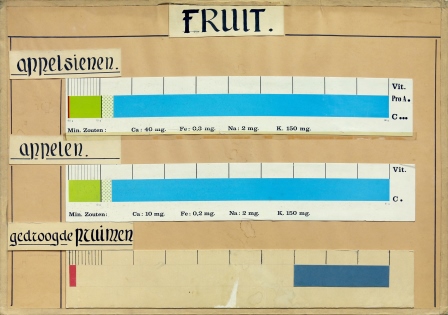 FRUIT.
appelsienen.
Vit.
Pro A.
C...
Min. Zouten: Ca: 40 mg. Fe: 0,3 mg. Na: 2 mg. K. 150 mg.
appelen.
Vit.
C.
Min. Zouten: Ca: 10 mg. Fe: 0,2 mg. Na: 2 mg. K. 150 mg.
gedroogde pruimen